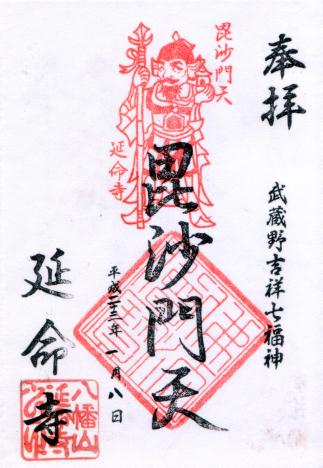 奉拝
武蔵野吉祥七福神
毘沙門天
延命寺
毘沙門天
平成二十三年一月八日
延命寺
八幡山